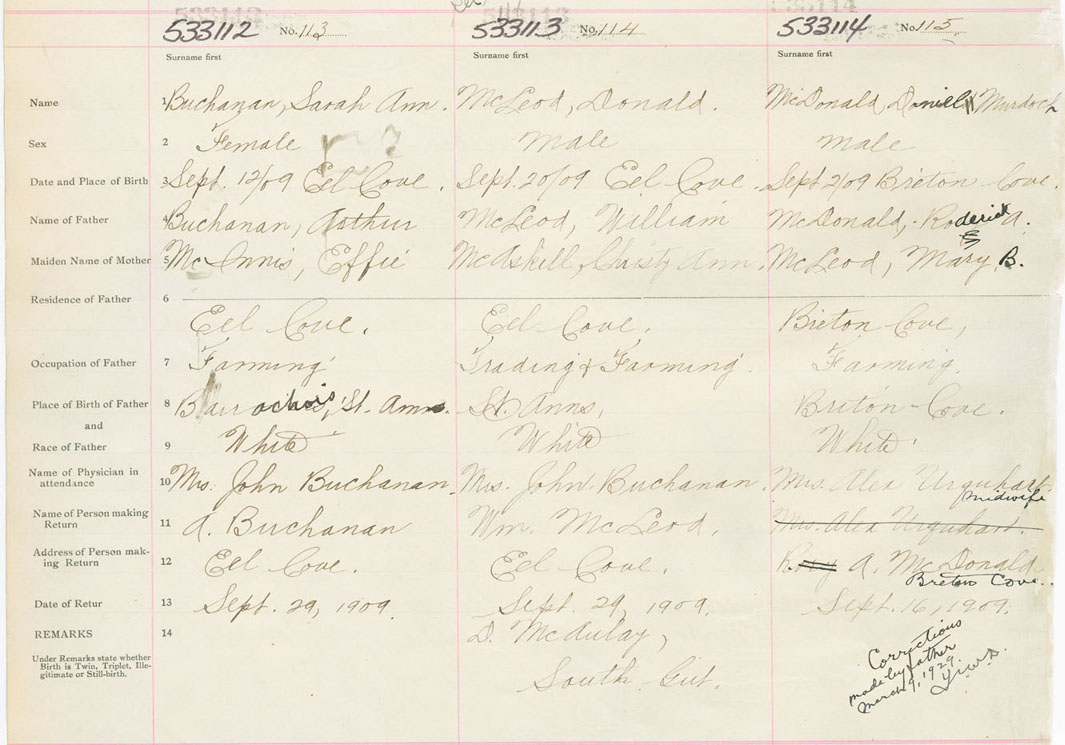 533112 No. 113 533113 No. 114 533114 No. 115
Surname first Surname first Surname first
Name 1 Buchanan, Sarah Ann. McLeod, Donald. McDonald, Daniel Murdoch
Sex 2 Female Male Male
Date and Place of Birth 3 Sept. 12/09 Eel Cove. Sept. 20/09 Eel Cove. Sept 2/09 Breton Cove.
Name of Father 4 Buchanan, Arthur McLeod, William McDonald, Roderick A.
Maiden Name of Mother 5 McInnis, Effie McAskill, Christy Ann. McLeod, Mary B.
Residence of Father 6
Eel Cove. Eel Cove. Breton Cove,
Occupation of Father 7 Farming Trading & Farming. Farming.
Place of Birth of Father 8 Barrachois, St. Anns. St. Anns, Briton-Cove.
and
Race of Father 9 White White White
Name of Physician in
attendance 10 Mrs. John Buchanan. Mrs. John Buchanan. Mrs. Alex Urquhart.
midwife
Name of Person making
Return 11 A. Buchanan Wm. McLeod. Mrs. Alex Urquhart.
Address of Person mak-
ing Return 12 Eel Cove. Eel Cove. A. McDonald
Breton Cove.
Date of Retur 13 Sept. 29, 1909. Sept. 29, 1909. Sept. 16, 1909.
REMARKS 14 D. McAulay,
Under Remarks state whether
Birth is Twin, Triplet, Ille-
gitimate or Still-birth.
South Gut.
Corrections
made by father
March 9, 1929.